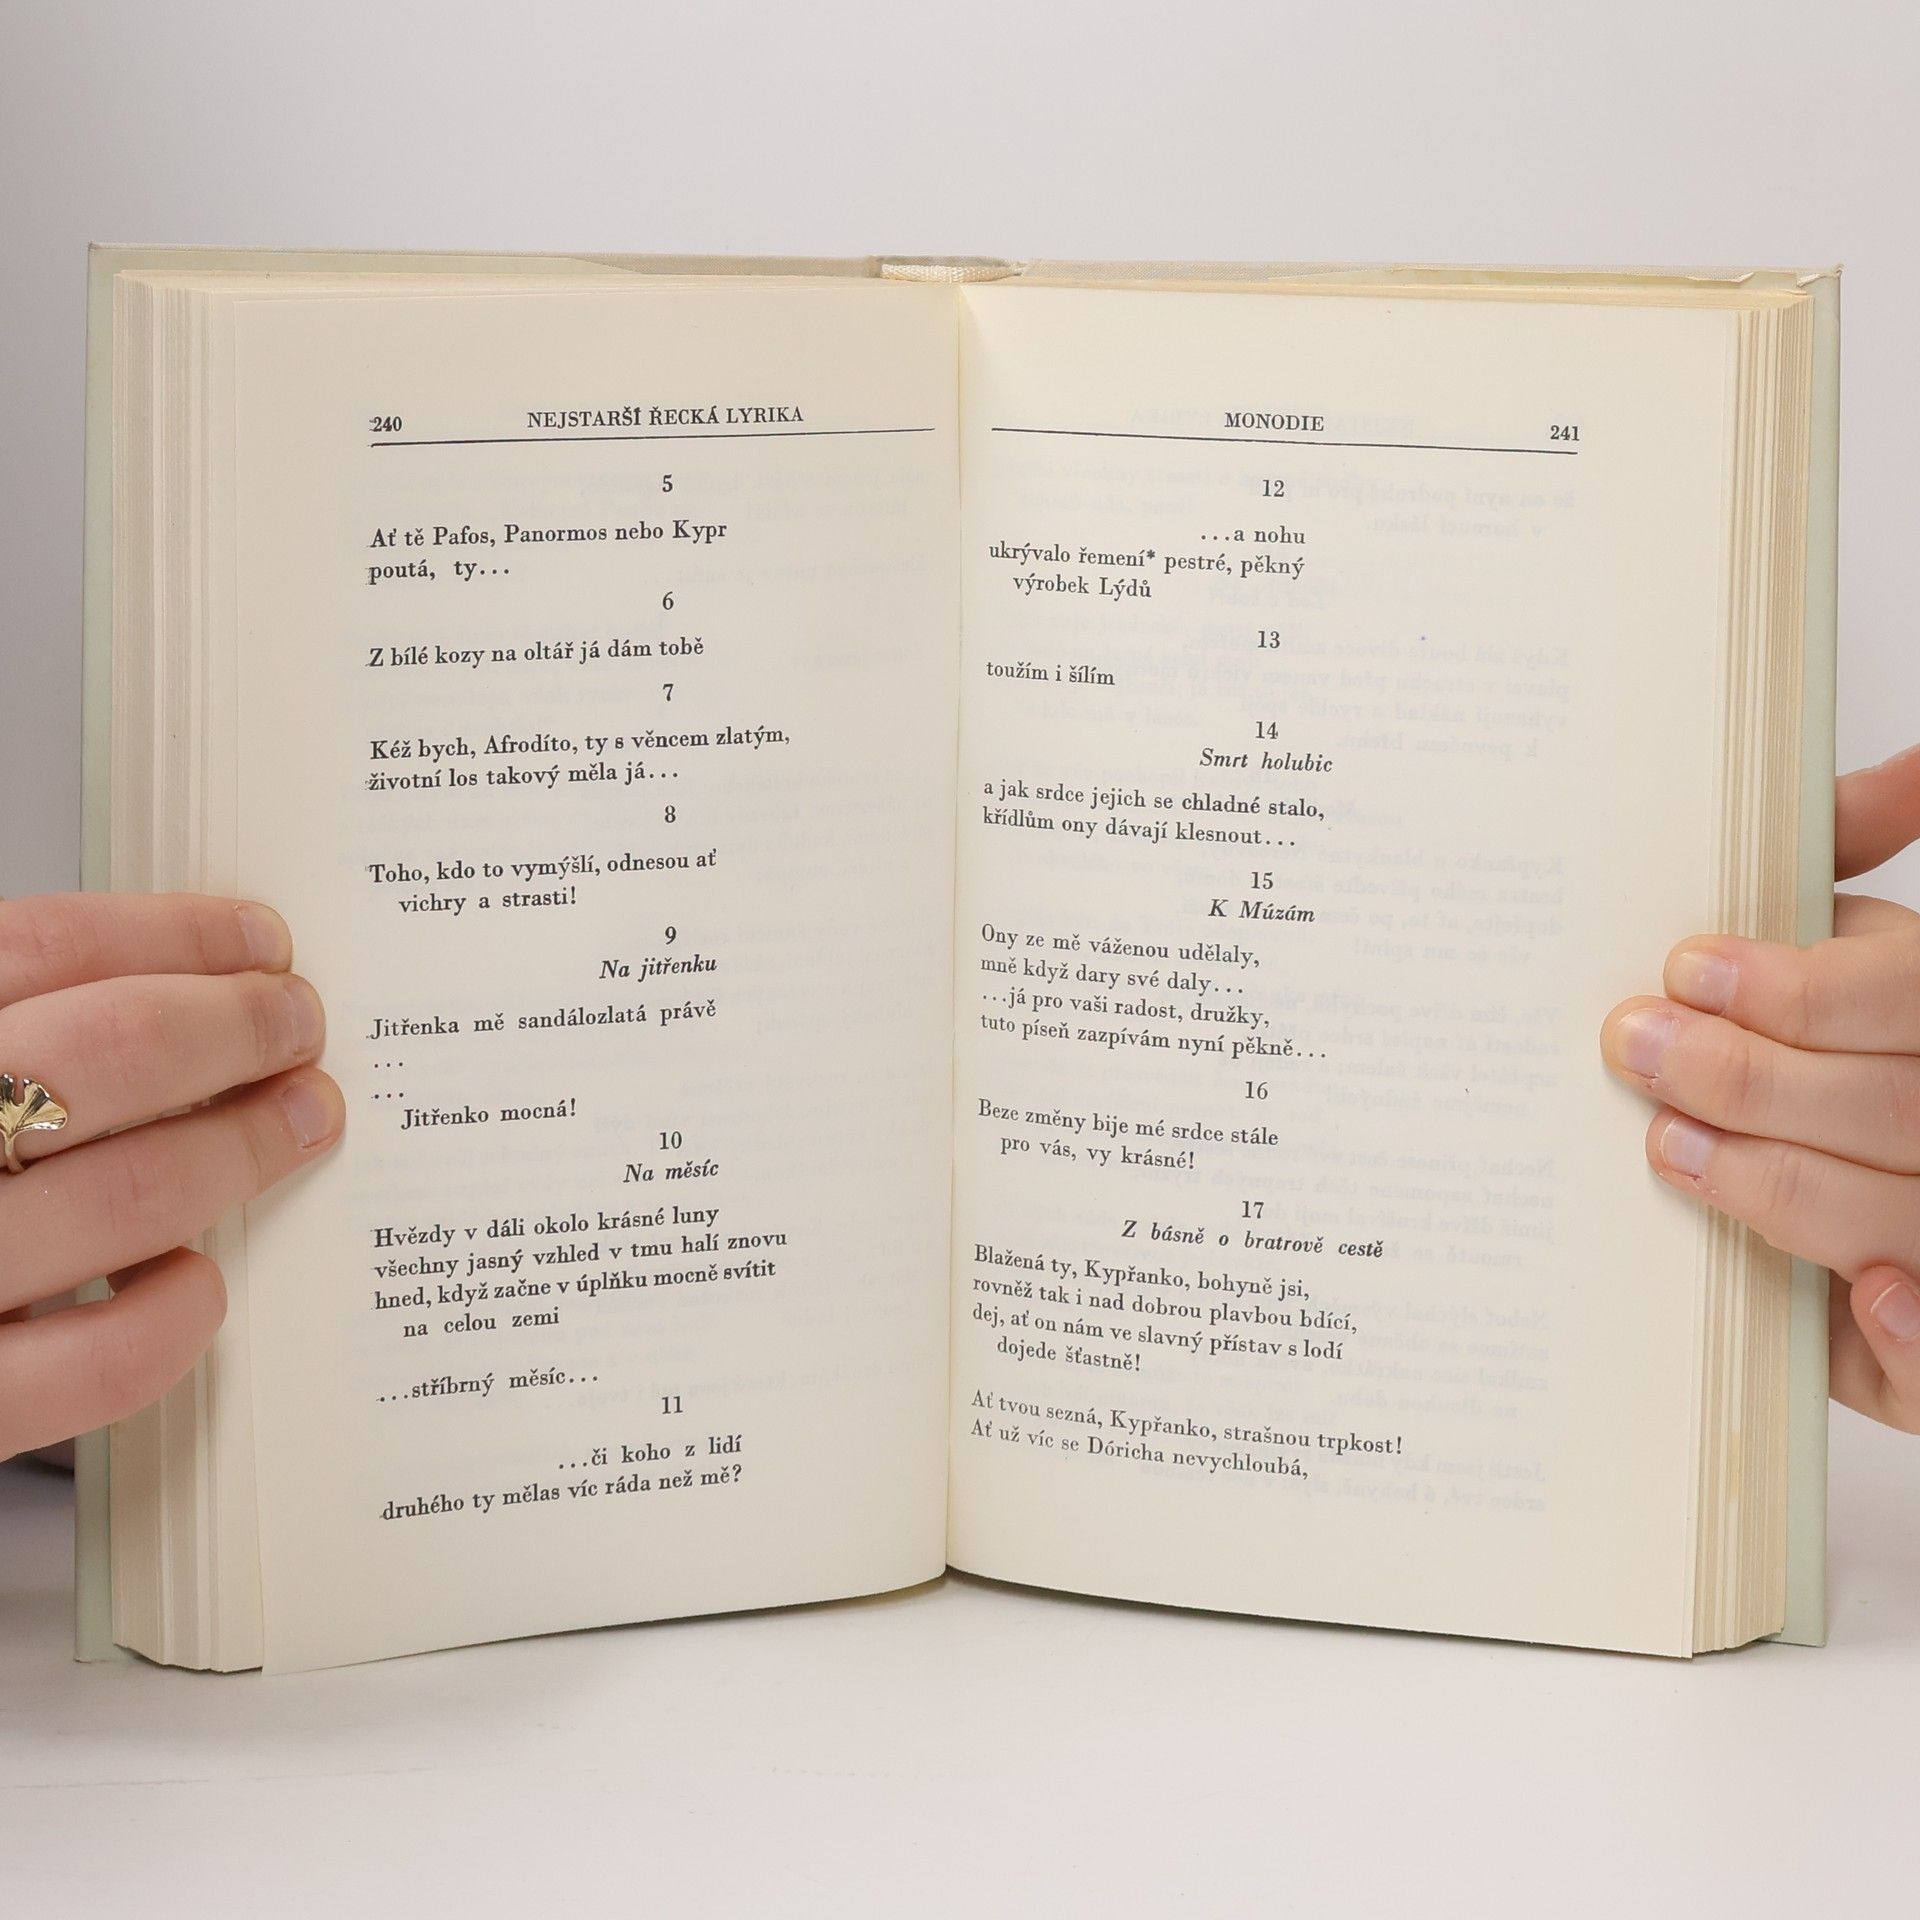 240 NEJSTARŠÍ ŘECKÁ LYRIKA
5
Ať tě Pafos, Panormos nebo Kypr
poutá, ty...
6
Z bílé kozy na oltář já dám tobě
7
Kéž bych, Afrodíto, ty s věncem zlatým,
životní los takový měla já...
8
Toho, kdo to vymýšlí, odnesou ať
vichry a strasti!
9
Na jitřenku
Jitřenka mě sandálozlatá právě
...
...
Jitřenko mocná!
10
Na měsíc
Hvězdy v dáli okolo krásné luny
všechny jasný vzhled v tmu halí znovu
hned, když začne v úplňku mocně svítit
na celou zemi
...stříbrný měsíc...
11
...či koho z lidí
druhého ty mělas víc ráda než mě?
MONODIE 241
12
...a nohu
ukrývalo řemení* pestré, pěkný
výrobek Lýdů
13
toužím i šílím
14
Smrt holubic
a jak srdce jejich se chladné stalo,
křídlům ony dávají klesnout...
15
K Múzám
Ony ze mě váženou udělaly,
mně když dary své daly...
...já pro vaši radost, družky,
tuto píseň zazpívám nyní pěkně...
16
Beze změny bije mé srdce stále
pro vás, vy krásné!
17
Z básně o bratrově cestě
Blažená ty, Kypřanko, bohyně jsi,
rovněž tak i nad dobrou plavbou bdící,
dej, ať on nám ve slavný přístav s lodí
dojede šťastně!
Ať tvou sezná, Kypřanko, strašnou trpkost!
Ať už víc se Dóricha nevychloubá,